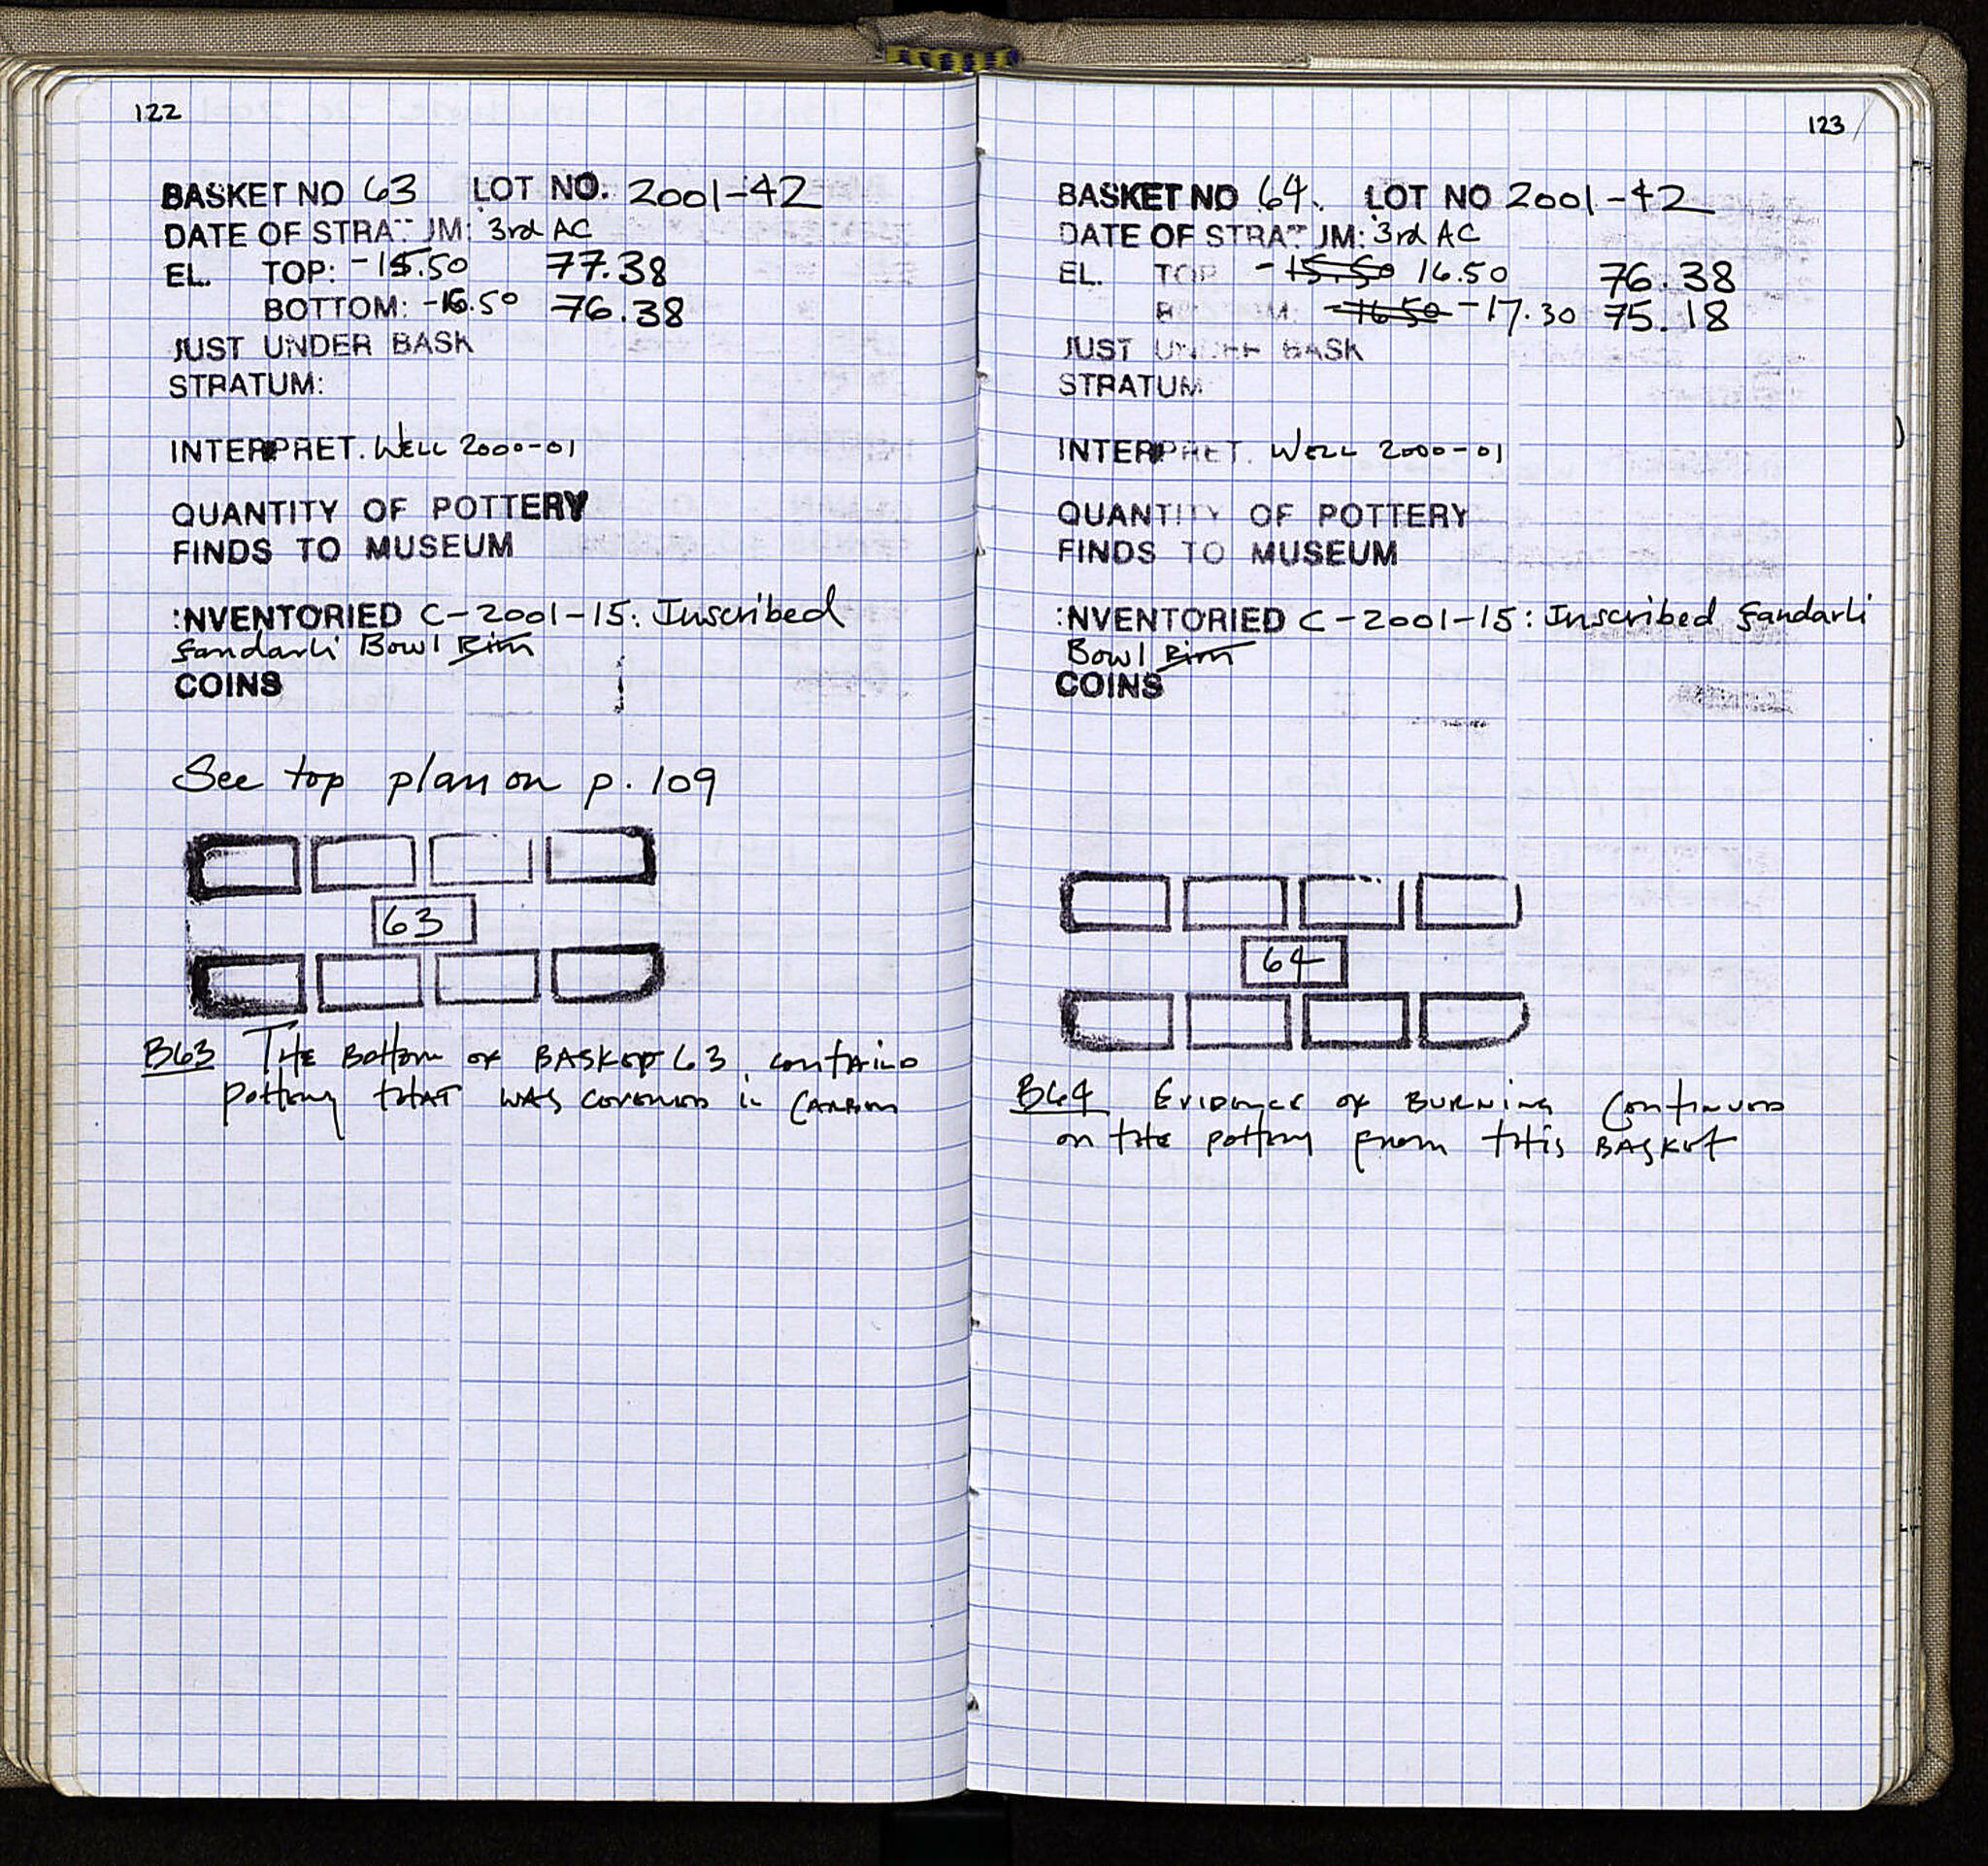 122
BASKET NO 63 LOT NO. 2001-42
DATE OF STRATUM: 3rd AC
EL. TOP: -15.50 77.38
BOTTOM: -16.50 76.38
JUST UNDER BASK
STRATUM:
INTERPRET. WELL 2000-01
QUANTITY OF POTTERY
FINDS TO MUSEUM
INVENTORIED C-2001-15: Inscribed
Çandarli Bowl Rim
COINS
See top plan on p. 109
63
B63 THE BOTTOM OF BASKET 63 CONTAINS
POTTERY THAT WAS COVERED IN CARBON
123
BASKET NO 64. LOT NO 2001-42
DATE OF STRATUM: 3rd AC
EL. TOP -15.50 16.50 76.38
BOTTOM: -16.50 -17.30 75.18
JUST UNDER BASK
STRATUM
INTERPRET. WELL 2000-01
QUANTITY OF POTTERY
FINDS TO MUSEUM
INVENTORIED C-2001-15: Inscribed Çandarli
Bowl Rim
COINS
64
B64 EVIDENCE OF BURNING CONTINUED
ON THE POTTERY FROM THIS BASKET